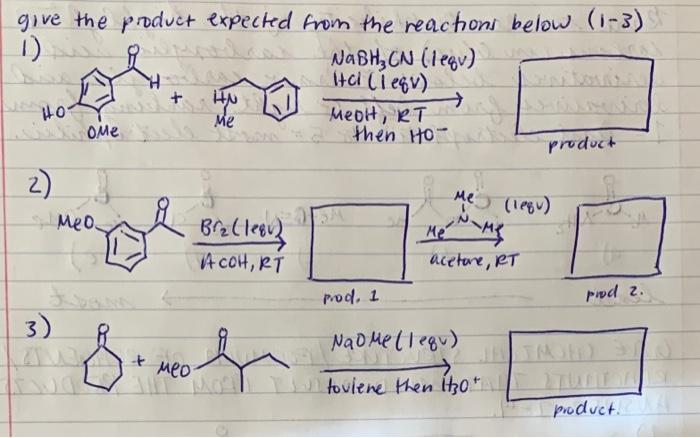 give the product expected from the reactions below (1-3)
1)
O
H
HO
OMe
+
HN
Me
NaBH3CN (1eqv)
HCl (1eqv)
MeOH, RT
then HO-
product
2)
MeO
O
Br2 (1eqv)
ACOH, RT
prod. 1
Me
N
Me Me
(1eqv)
acetone, RT
prod 2.
3)
O
+
MeO
O
NaOMe (1eqv)
toulene then H3O+
product.